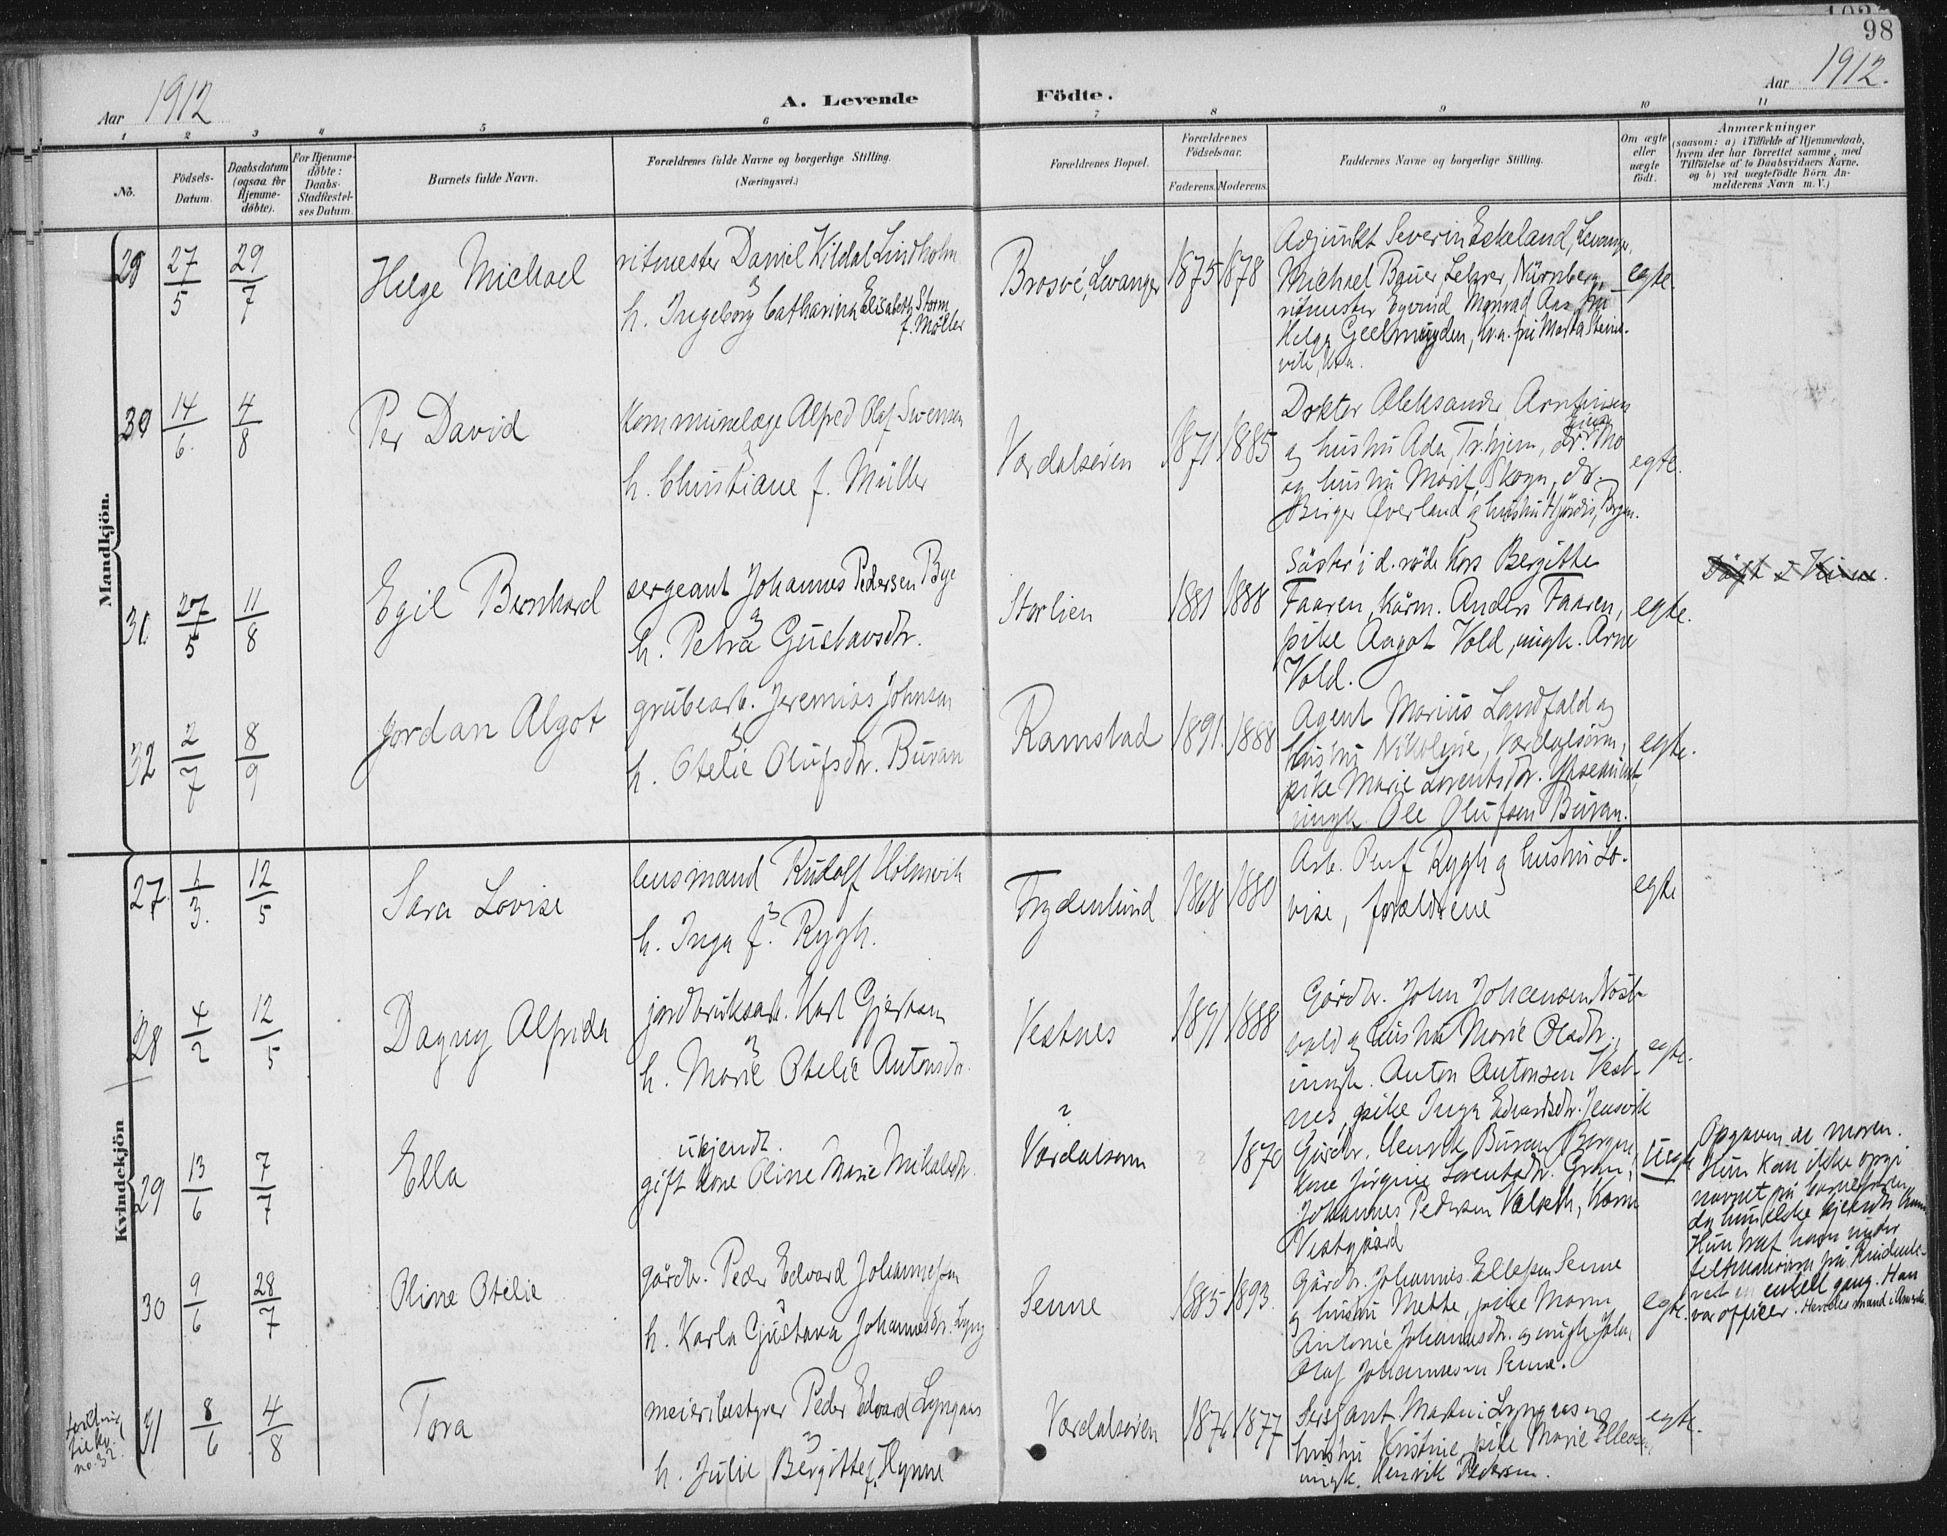 98
Aar 1912
A. Levende Födte.
Aar 1912.
1 2 3 4 5 6 7 8 9 10 11
No.
Födsels-Datum.
Daabsdatum (ogsaa for Hjemme-döbte).
For Hjemme-döbte: Daabs-Stadfæstel-ses Datum
Barnets fulde Navn.
Forældrenes fulde Navne og borgerlige Stilling. (Næringsvei.)
Forældrenes Bopæl.
Forældrenes Födselsaar.
Faderens. Moderens.
Faddernes Navne og borgerlige Stilling.
Om ægte eller uægte födt.
Anmærkninger
(saasom: a) i Tilfælde af Hjemmedaab,
hvem der har forrettet samme, med
Tilföielse af to Daabsvidners Navne,
og b) ved uægtefödte Börn An-
melderens Navn m. V.)
Mandkjön.
29 27/5 29/7 Helge Michael
ritmester Daniel Kildal Lindholm
h. Ingeborg Catharina Elisabeth Storm
f. Møller
Levanger 1875 1878
Adjunkt Severin Eskeland, Levanger,
Michael Bauer Lehrer, Nürnberg,
ritmester Eyvind
Helga Geelmuyden,
egte.
30 14/6. 4/8 Per David
Kommunelæge Alfred Olaf Svensen
h. Christiane f. Müller
Værdalsøren 1871 1885
Dokter Aleksander Arntinsen
og hustru Ada, Tr.hjem, dr. Mo
og hustru Marit, Skogn, dr.
Birger Øverland og hustru Hjørdis,
egte.
31. 27/5 11/8 Egil Bernhard
sergeant Johannes Pedersen Bye
h. Petra Gustavsdtr.
Storlien 1881 1888
Søster i d. røde Kors Bergitte
Faaren, Kårm. Anders Faaren,
pike Aagot Vold, ungk. Arne
Vold.
egte.
32 2/7 8/9 Jordan Algot
grubearb. Jeremias Johnsen
h. Otelie Olufsdtr. Buran
Ramstad 1891. 1888
Agent Marius Landfald og
hustru Nikoline, Værdalsøren,
pike Marie Lorentsdtr.
ungk. Ole Olufsen Buran.
egte.
Kvindekjön
27. 1/3. 12/5 Sara Lovise
lensmand Rudolf Holmvik
h. Inga f. Rygh.
Frydenlund 1868 1880
Arb. Rygh og hustru Lo-
vise, forældrene
egte
28 4/2 12/5 Dagny Alfrida
jordbruksarb. Karl Gjertsen
h. Marie Otelie Antonsdtr.
Vestnes 1891 1888
Gårdbr. John Johansen Nøst-
vold og hustru Marie Olsdtr.,
ungk. Anton Antonsen Vest-
nes, pike Inga Edvardsdtr. Jensvik
egte.
29 13/6 7/7 Ella
ukjendt.
gift kone Oline Marie Mikalsdtr.
?
Værdalsøren 1870
Gårdbr. Henrik Buran,
kone Jørgine Lorentsdtr.
Johannes Pedersen
Vestgård
uegte
Opgaven av moren.
Hun kan ikke opgi
navnet på barnefaren,
da hun ikke kjendte ham.
Hun traf ham under
feltmanøvren på Rindenle-
ret en enkelt gang. Han
var officer. Hendes mand i Amerika.
30 9/6 28/7 Oline Otelie
gårdbr. Peder Edvard Johannessen
h. Karla Gustava Johannesdtr. Lyng
Senne 1885 1893.
Gårdbr. Johannes Ellefsen Senne
og hustru Mette, pike Maren
Antonie Johannesdtr. og ungk. Joh.
Olaf Johannessen Senne.
egte.
31 8/6 4/8 Tora
meieribestyrer Peder Edvard Lyngaas
h. Julie Bergitte f. Hynne
Værdalsøren 1876 1877
Sersjant Martin Lyngaas og
hustru Kristine, pike Marie Ellevsen,
ungk. Henrik Pedersen.
egte.
no. 32.